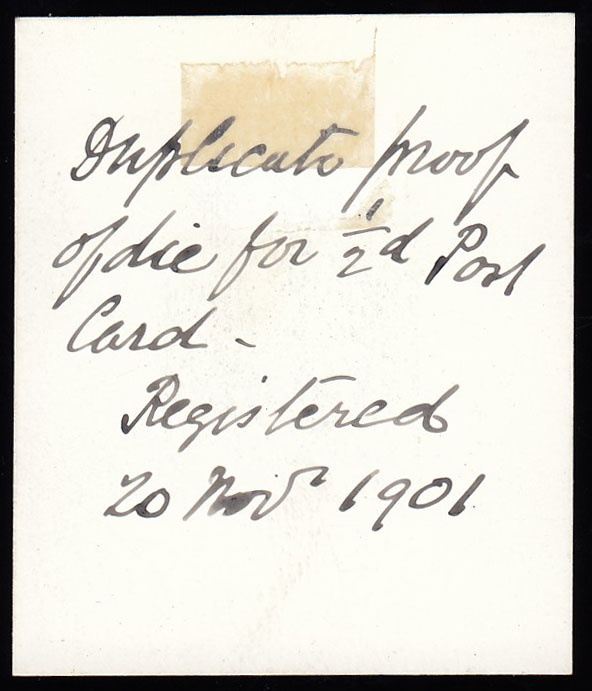 Duplicate proof
of die for ½d Post
Card -
Registered
20 Novr 1901